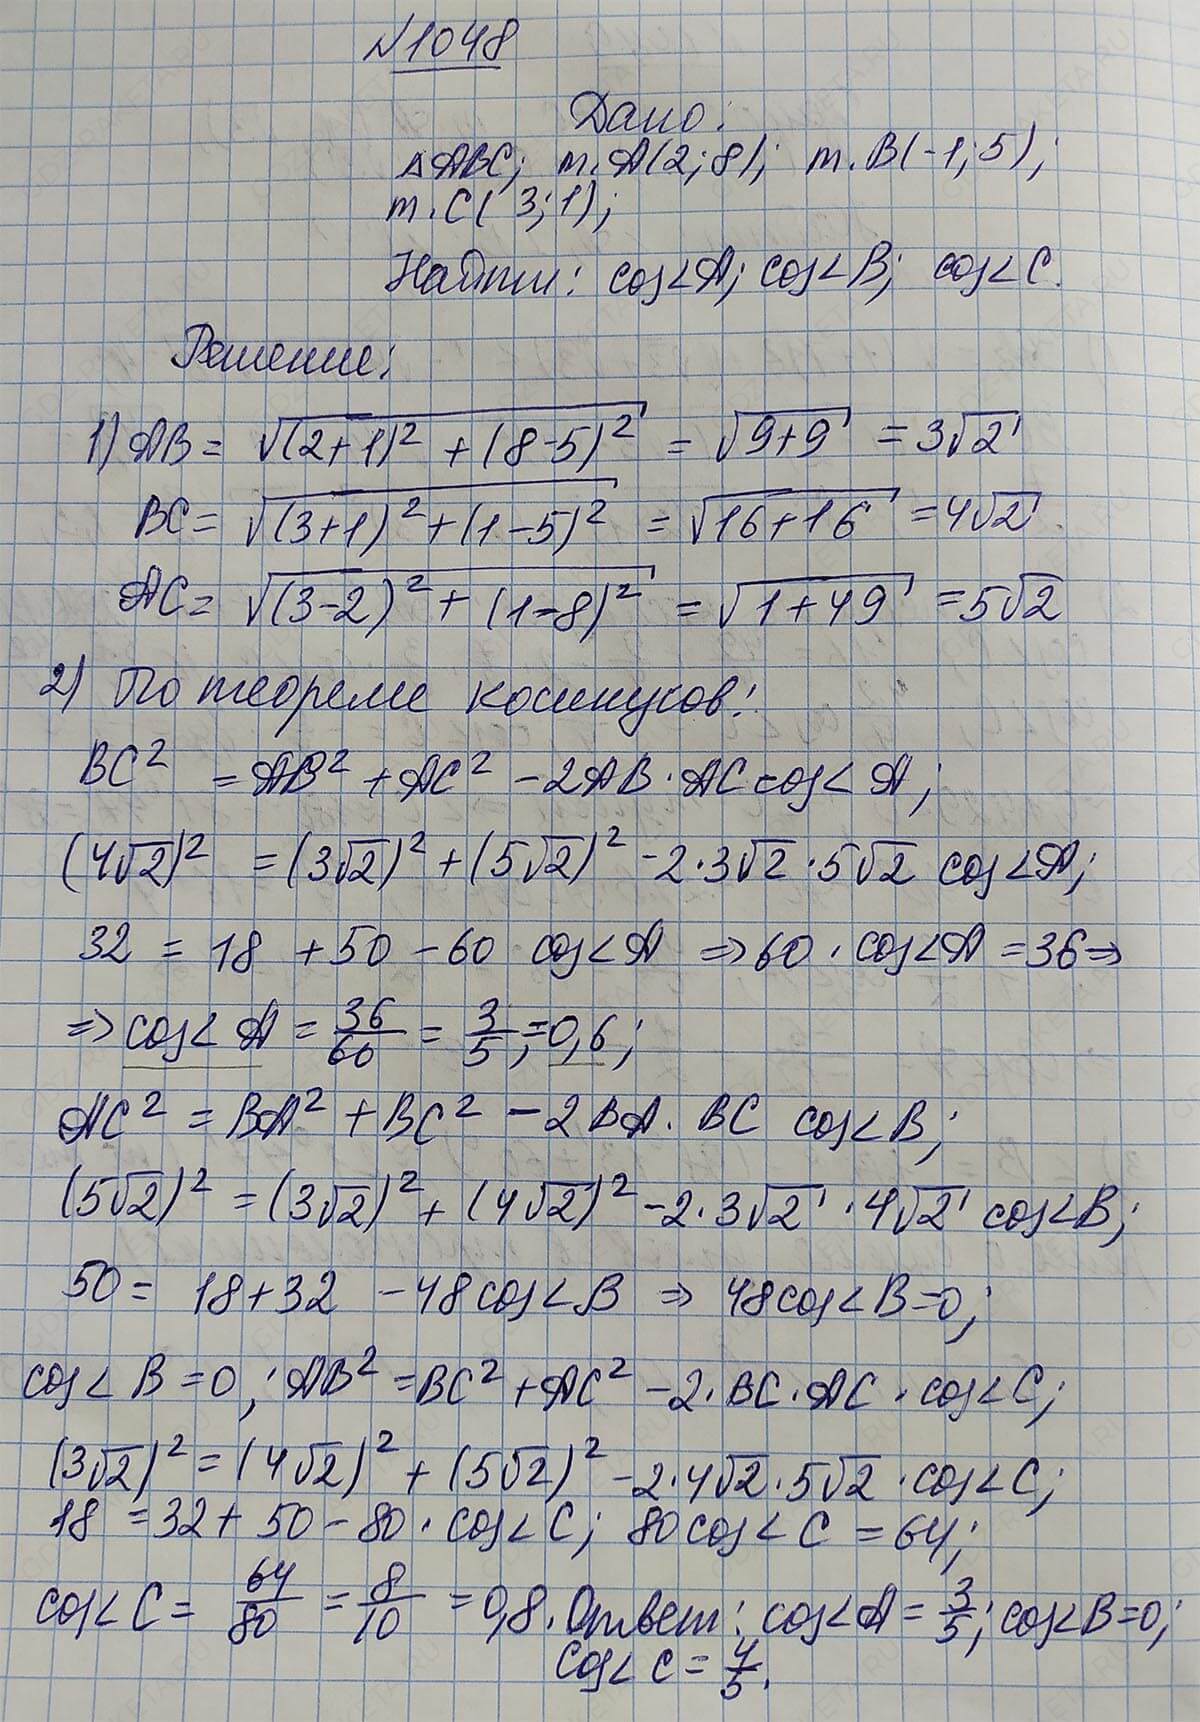 №1048
Дано:
△ABC; т.A(2;8); т.B(-1;5);
т.C(3;1);
Найти: cos<A; cos<B; cos<C.
Решение:
1) AB = √((2+1)² + (8-5)²) = √(9+9) = 3√2
BC = √((3+1)² + (1-5)²) = √(16+16) = 4√2
AC = √((3-2)² + (1-8)²) = √(1+49) = 5√2
2) По теореме косинусов:
BC² = AB² + AC² - 2AB·AC cos<A;
(4√2)² = (3√2)² + (5√2)² - 2·3√2·5√2 cos<A;
32 = 18 + 50 - 60 cos<A ⇒ 60·cos<A = 36 ⇒
⇒ cos<A = 36/60 = 3/5; = 0,6;
AC² = BA² + BC² - 2BA·BC cos<B;
(5√2)² = (3√2)² + (4√2)² - 2·3√2·4√2 cos<B;
50 = 18 + 32 - 48cos<B ⇒ 48cos<B=0;
cos<B=0; AB² = BC² + AC² - 2·BC·AC·cos<C;
(3√2)² = (4√2)² + (5√2)² - 2·4√2·5√2·cos<C;
18 = 32 + 50 - 80·cos<C; 80cos<C = 64;
cos<C = 64/80 = 8/10 = 0,8. Ответ: cos<A = 3/5; cos<B=0;
cos<C = 4/5.